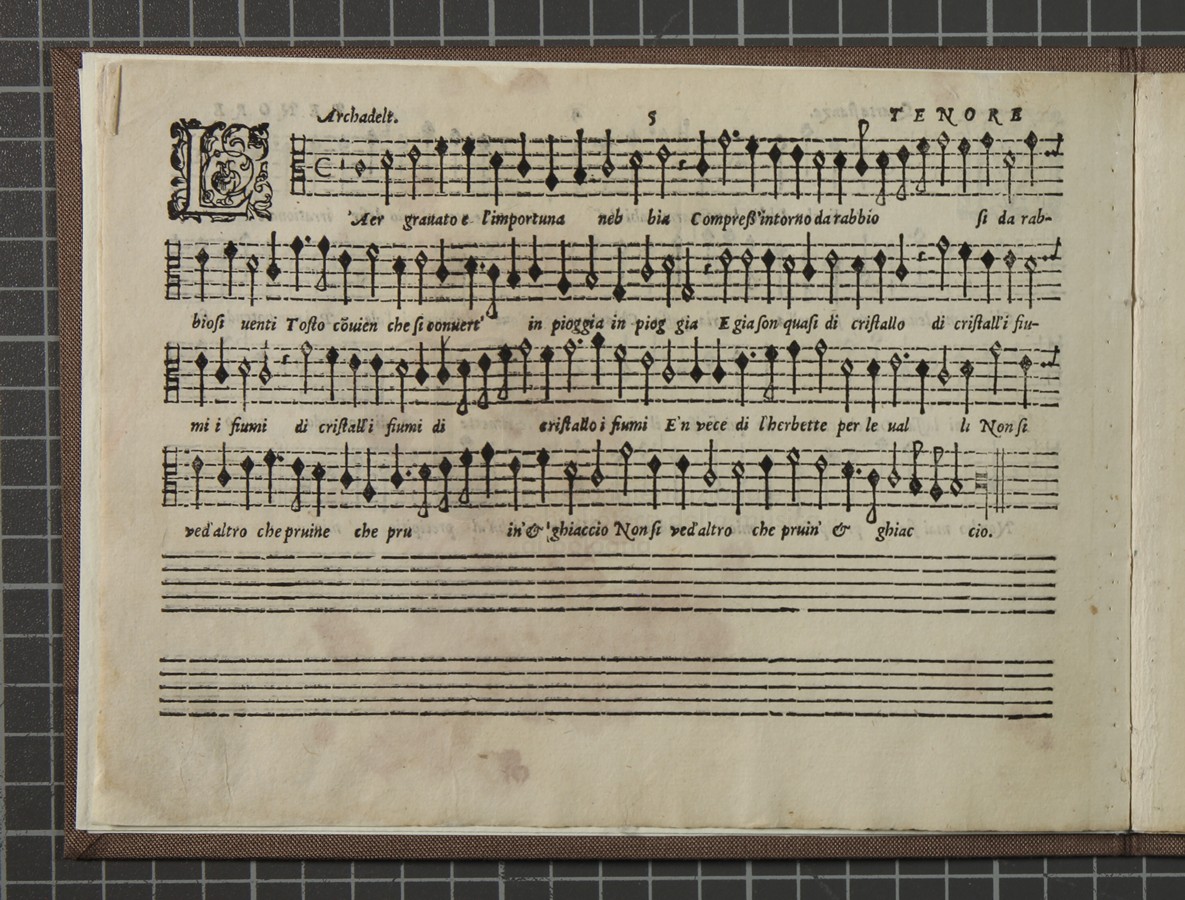 Archadelt. 5 TENORE
L 'Aer grauato e l'importuna neb bia Compreß'intorno da rabbio si da rab-
biosi uenti Tosto cõuien che si conuert' in pioggia in piog gia E gia son quasi di cristallo di cristall'i fiu-
mi i fiumi di cristall'i fiumi di cristallo i fiumi E'n vece di l'herbette per le ual li Non si
ved'altro che pruine che pru in'&'ghiaccio Non si ved'altro che pruin' & ghiac cio.